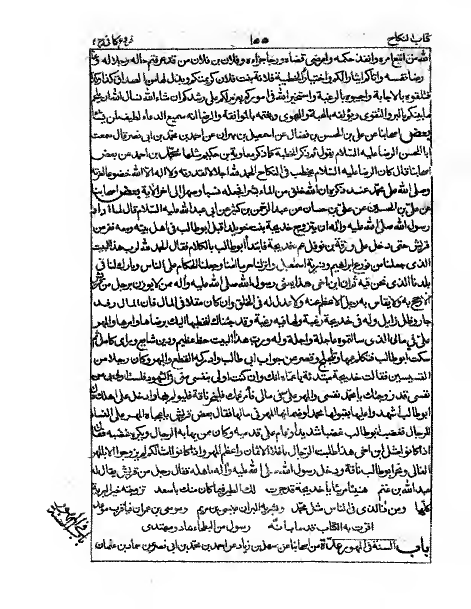 كتاب النكاح ١٥٥ فروع كافي
رضا نفسه وأتاكم إيثارا لكم واختيارا لخطبة فلانة بنت فلان كريمتكم وبذل لها من الصداق كذا وكذا
فتلقوه بالإجابة وأجيبوه بالرغبة واستخيروا الله في أموركم يعزم لكم على رشدكم إن شاء الله نسأل الله أن يلحم
ما بينكم بالبر والتقوى ويؤلفه بالمحبة والهوى ويختمه بالموافقة والرضا إنه سميع الدعاء لطيف لما يشاء
بعض أصحابنا عن علي بن الحسين بن فضال عن إسماعيل بن مهران عن أحمد بن محمد بن أبي نصر قال سمعت
أبا الحسن الرضا عليه السلام يقول ثم ذكر الخطبة كما ذكر معاوية بن حكيم مثلها محمد بن أحمد عن بعض
أصحابنا قال كان الرضا عليه السلام يخطب في النكاح الحمد لله إجلالا لقدرته ولا إله إلا الله خضوعا لعزته
وصلى الله على محمد وآله عند ذكره إن الله خلق من الماء بشرا فجعله نسبا وصهرا إلى آخر الآية بعض أصحابنا
عن علي بن الحسين عن علي بن حسان عن عبد الرحمن بن كثير عن أبي عبد الله عليه السلام قال لما أراد
رسول الله صلى الله عليه وآله أن يتزوج خديجة بنت خويلد أقبل أبو طالب في أهل بيته ومعه نفر من
قريش حتى دخل على ورقة بن نوفل عم خديجة فابتدأ أبو طالب بالكلام فقال الحمد لرب هذا البيت
الذي جعلنا من زرع إبراهيم وذرية إسمعيل وأنزلنا حرما آمنا وجعلنا الحكام على الناس وبارك لنا في
بلدنا الذي نحن فيه ثم إن ابن أخي هذا يعني رسول الله صلى الله عليه وآله ممن لا يوزن برجل من قريش
إلا رجح به ولا يقاس به رجل إلا عظم عنه ولا عدل له في الخلق وإن كان مقلا في المال فإن المال رفد
جار وظل زايل وله في خديجة رغبة ولها فيه رغبة وقد جئناك لنخطبها إليك برضاها وأمرها والمهر
علي في مالي الذي سألتموه عاجله وآجله وله ورب هذا البيت حظ عظيم ودين شايع ورأي كامل ثم
سكت أبو طالب فتكلم عمها وتلجلج وقصر عن جواب أبي طالب وأدركه القطع والبهر وكان رجلا من
القسيسين فقالت خديجة مبتدئة يا عماه إنك وإن كنت أولى بنفسي مني في الشهود فلست أولى بي من
نفسي قد زوجتك يا محمد نفسي والمهر علي في مالي فأمر عمك فلينحر ناقة فليولم بها وادخل على أهلك قال
أبو طالب اشهدوا عليها بقبولها محمدا وضمانها المهر في مالها فقال بعض قريش يا عجباه المهر على النساء
للرجال فغضب أبو طالب غضبا شديدا وقام على قدميه وكان ممن يهابه الرجال ويكره غضبه فقال
إذا كانوا مثل ابن أخي هذا طلبت الرجال بأغلا الأثمان وأعظم المهر وإذا كانوا أمثالكم لم يزوجوا إلا بالمهر
الغالي ونحر أبو طالب ناقة ودخل رسول الله صلى الله عليه وآله بأهله فقال رجل من قريش يقال له
عبد الله بن غنم هنيئا مريئا يا خديجة قد جرت لك الطير فيما كان منك بأسعد تزوجته خير البرية
كلها ومن ذا الذي في الناس مثل محمد وبشر به البران عيسى بن مريم وموسى بن عمران فيا قرب موعد
أقرت به الكتاب قدما بأنه رسول من البطحاء هاد ومهتدي
باب السنة في المهور عدة من أصحابنا عن سهل بن زياد عن أحمد بن محمد بن أبي نصر عن حماد بن عثمان